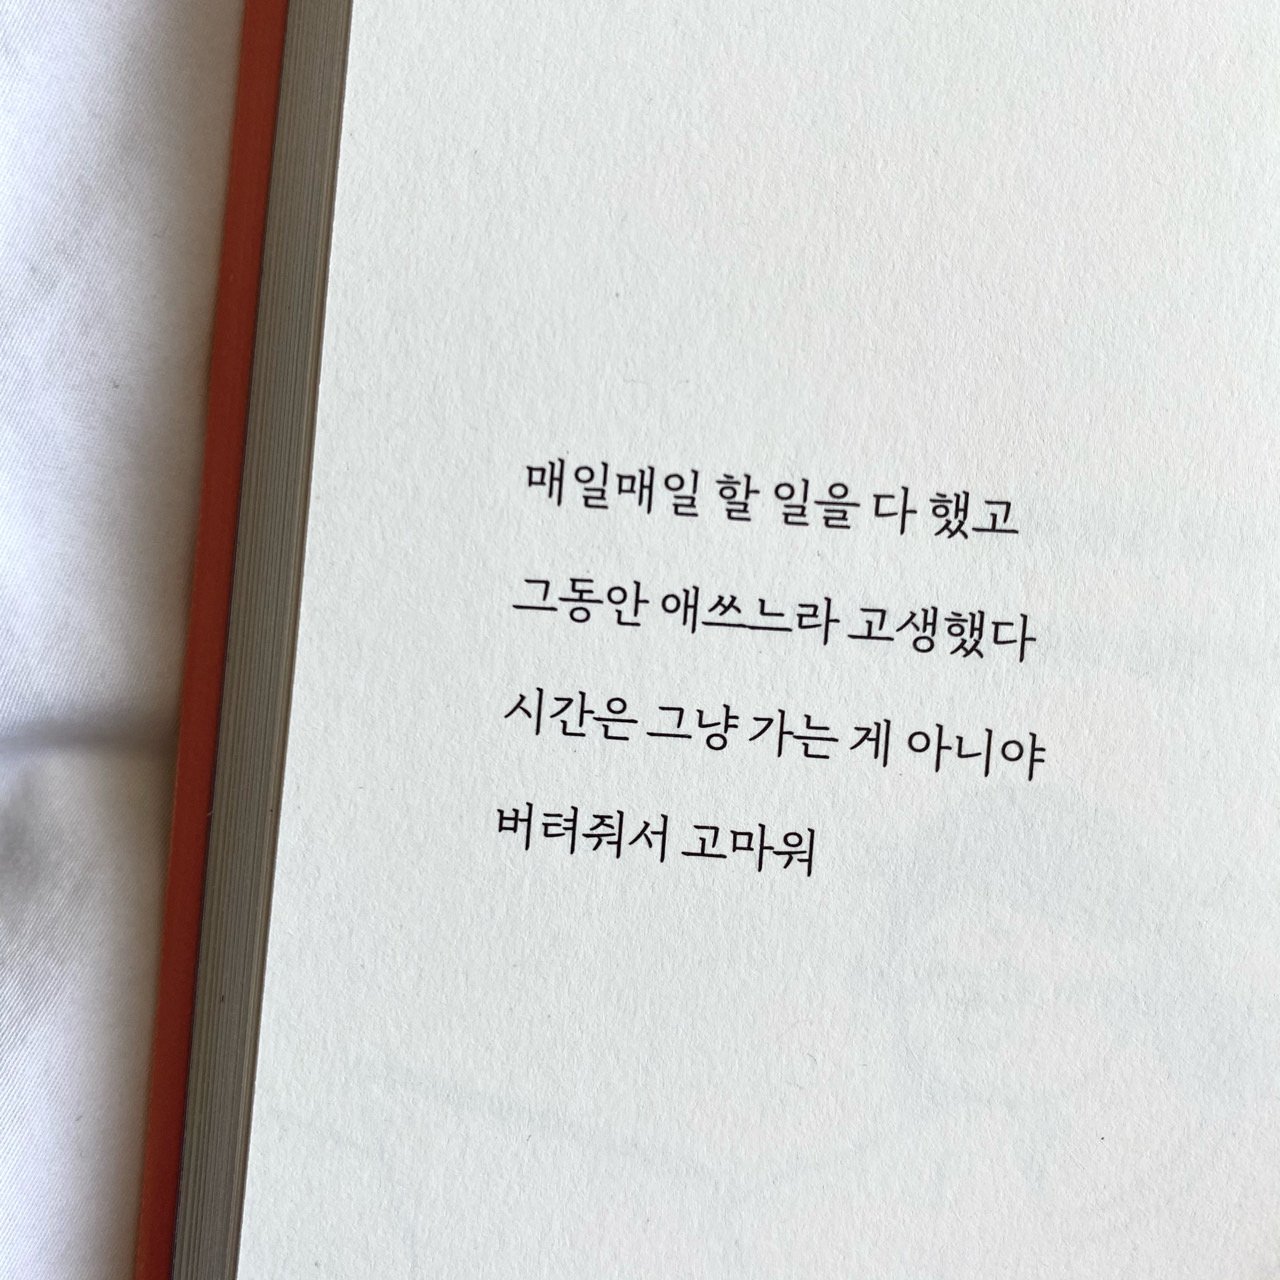 매일매일 할 일을 다 했고
그동안 애쓰느라 고생했다
시간은 그냥 가는 게 아니야
버텨줘서 고마워